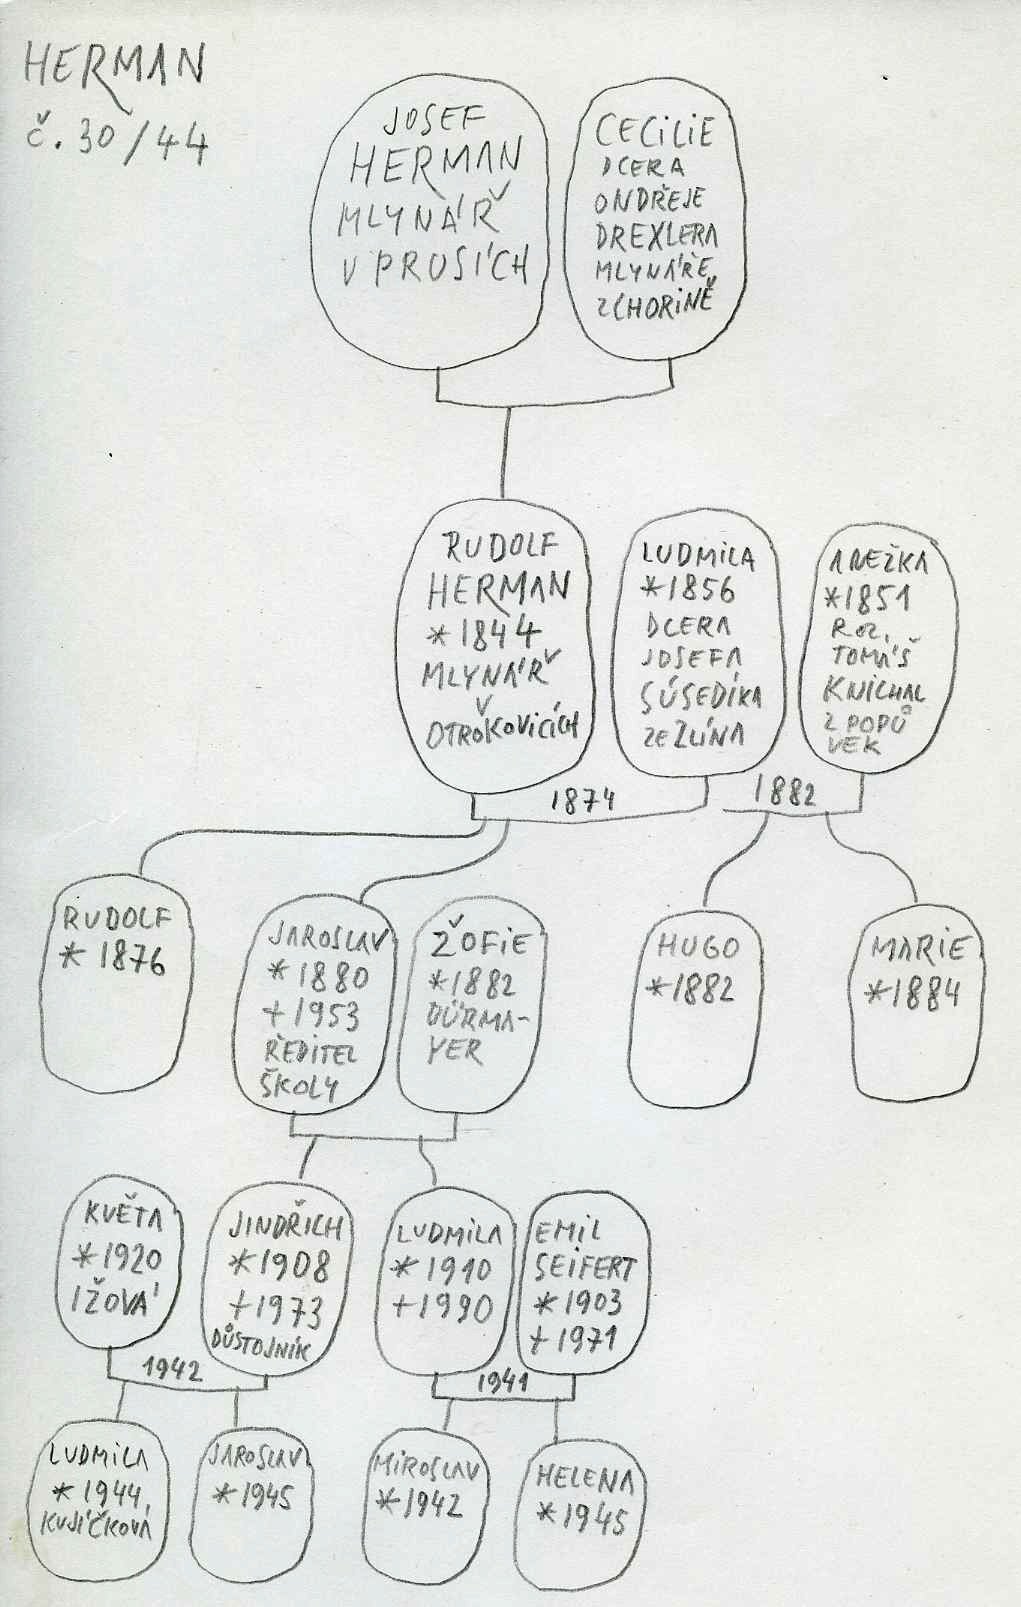 HERMAN
č. 30/44
JOSEF
HERMAN
MLYNÁŘ
V PRUSÍCH
CECILIE
DCERA
ONDŘEJE
DREXLERA
MLYNÁŘE
Z CHORINĚ
RUDOLF
HERMAN
*1844
MLYNÁŘ
V
OTROKOVICÍCH
LUDMILA
*1856
DCERA
JOSEFA
SÚSEDÍKA
ZE ZLÍNA
ANEŽKA
*1851
ROZ.
TOMÁŠ
KNICHAL
Z POPŮ
VEK
1874
1882
RUDOLF
*1876
JAROSLAV
*1880
+1953
ŘEDITEL
ŠKOLY
ŽOFIE
*1882
DÜRMA-
YER
HUGO
*1882
MARIE
*1884
KVĚTA
*1920
IŽOVÁ
JINDŘICH
*1908
+1973
DŮSTOJNÍK
LUDMILA
*1910
+1990
EMIL
SEIFERT
*1903
+1971
1942
1941
LUDMILA
*1944,
KUJÍČKOVÁ
JAROSLAV
*1945
MIROSLAV
*1942
HELENA
*1945